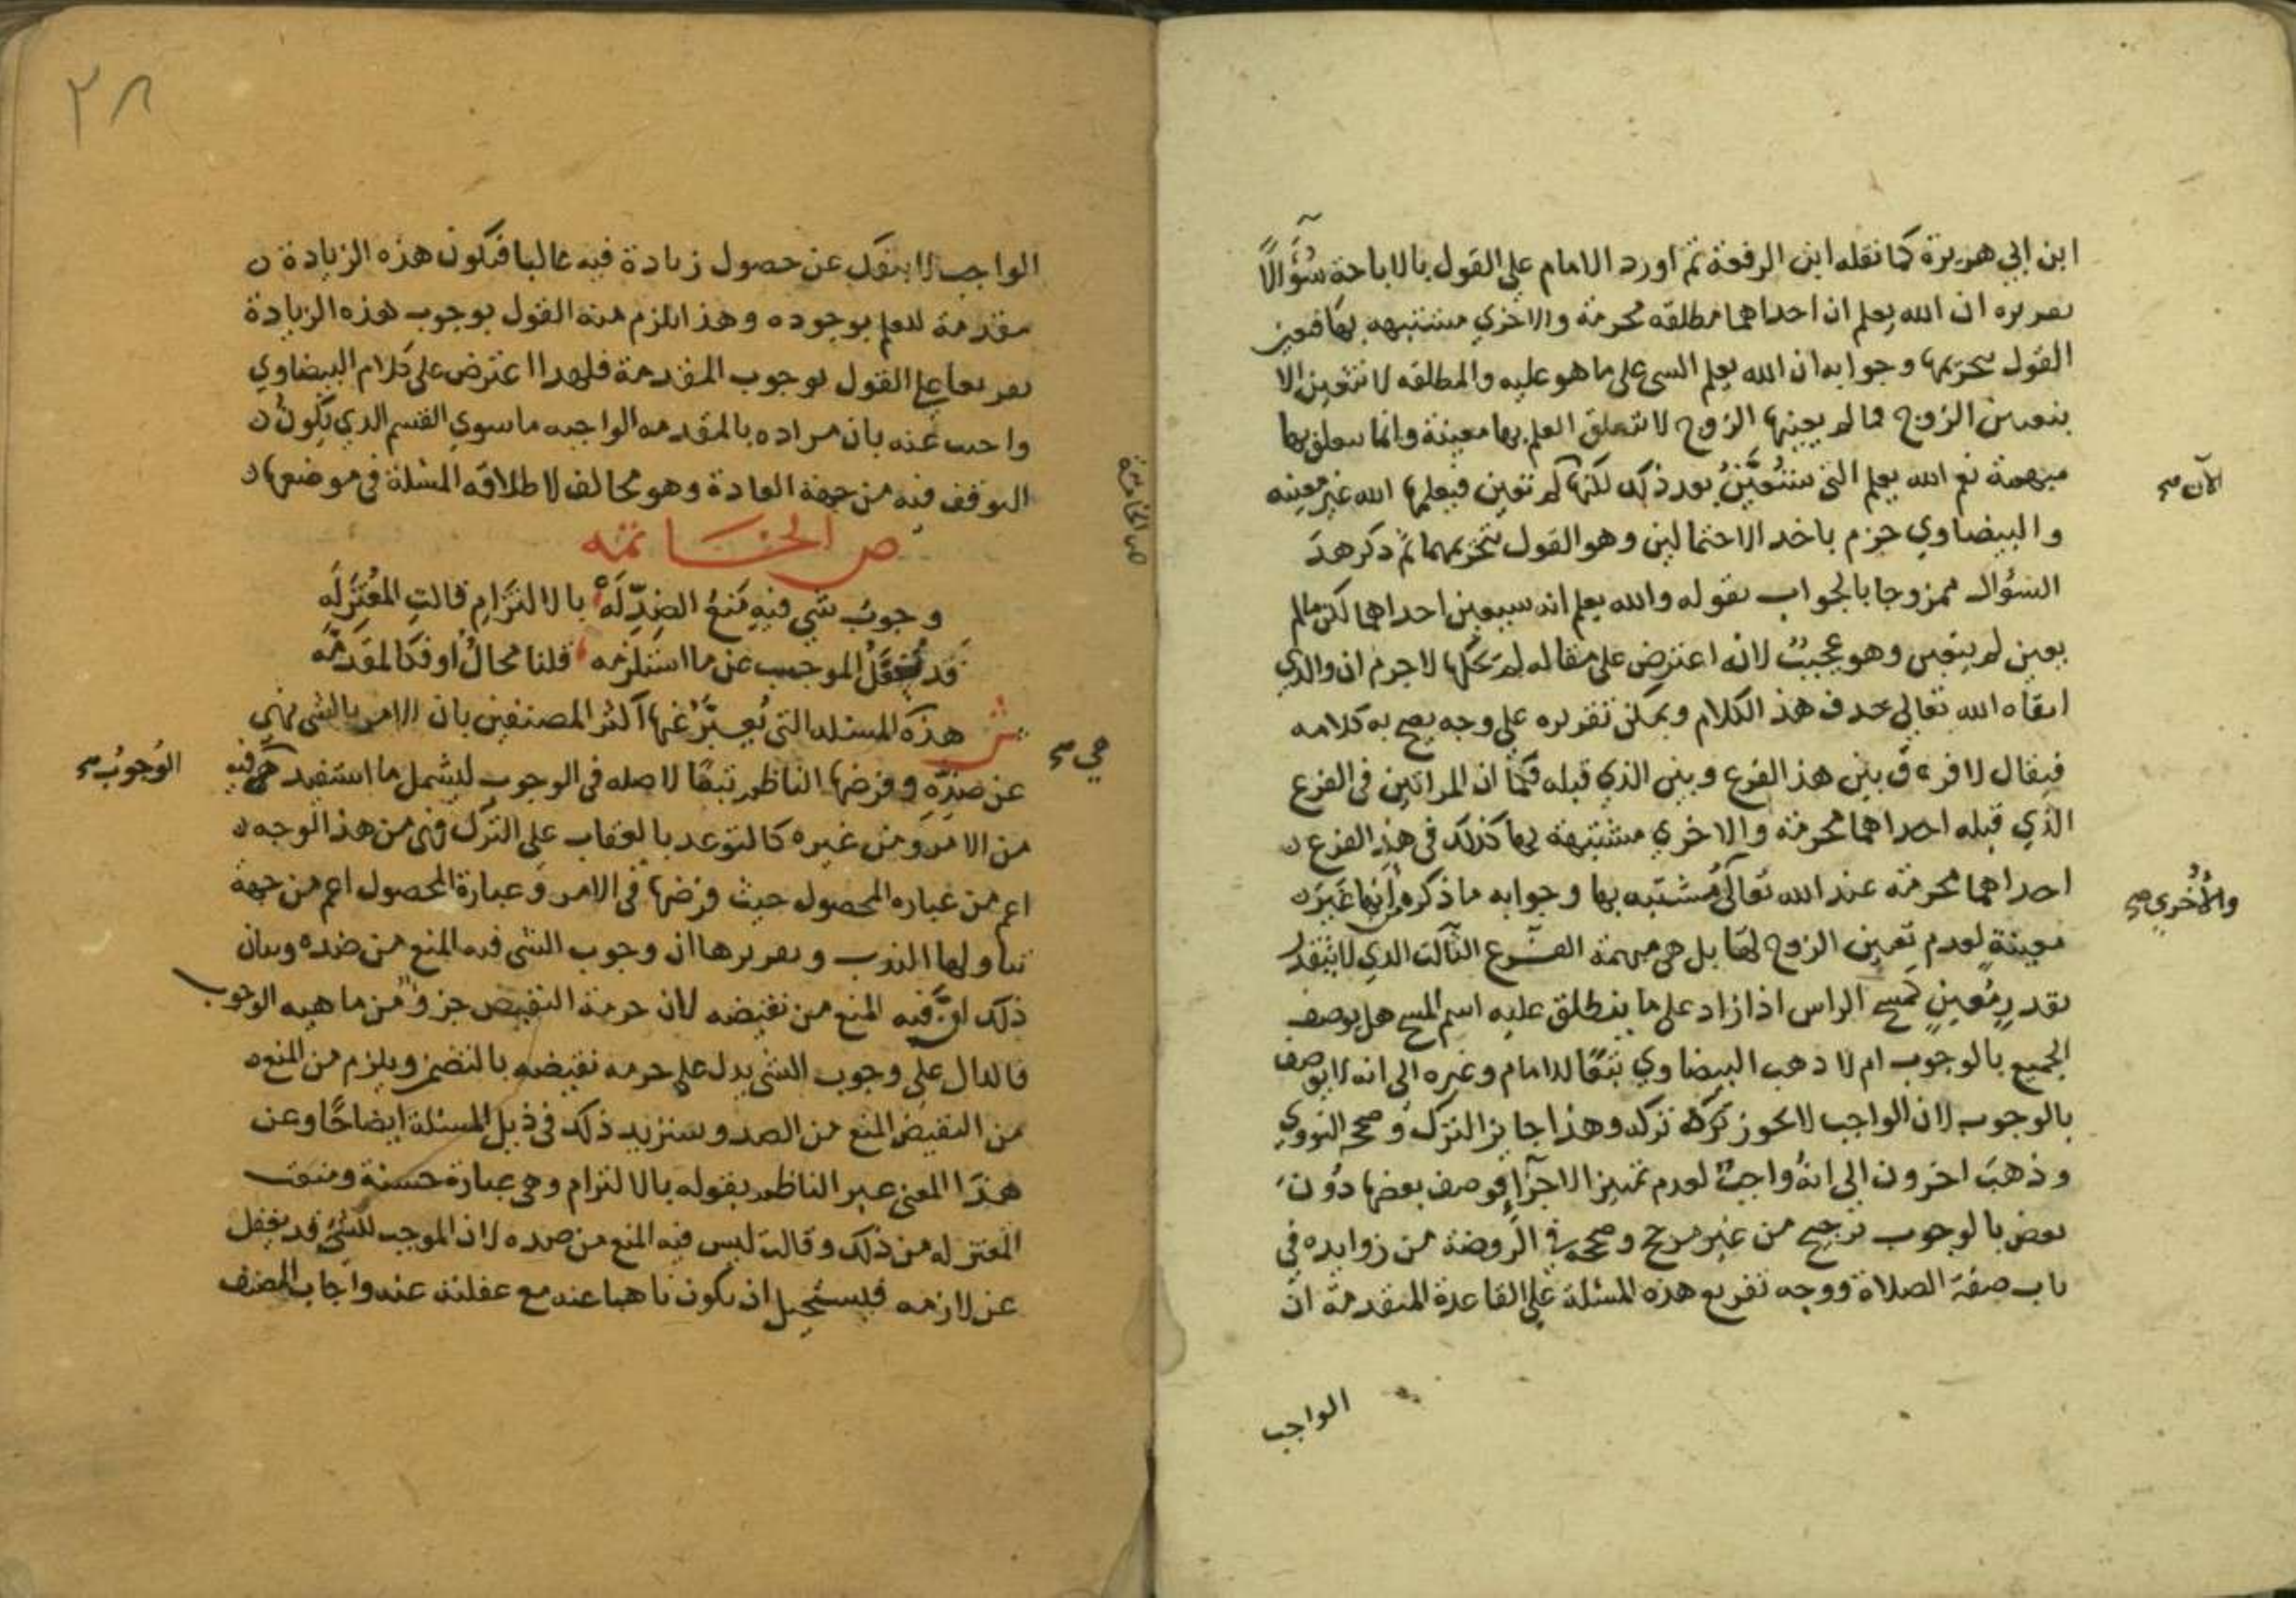 ابن ابي هريرة كما نقله ابن الرفعة ثم اورد الامام علي القول بالاباحة سُؤَالًا
تقريره ان الله يعلم ان احداهما مطلقه محرمة والاخري مشتبهه بها فتعين
القول بتحريمها وجوابه ان الله يعلم الشي على ما هو عليه والمطلقه لا تتعين الا
بتعيين الزوج فما لم يعينها الزوج لا يتعلق العلم بها معينة وانما يتعلق بها
مبهمة نعم الله يعلم التي ستُعَيَّنُ بعد ذلك لكنها لم تتعين فيعلمها الله غير معينه
الآن صح
والبيضاوي جزم باحد الاحتمالين وهو القول بتحريمهما ثم ذكر هذا
السؤال ممزوجا بالجواب بقوله والله يعلم انه سيعين احداهما لكن مالم
يعين لم يتعين وهو عجيبٌ لانه اعترض على مقاله لم يحكها لاجرم ان والدي
ابقاه الله تعالي حذف هذ الكلام ويمكن تقريره علي وجه يصح به كلامه
فيقال لا فرق بين هذ الفرع وبين الذي قبله فكما ان المراتين في الفرع
الذي قبله احداهما محرمة والاخري مشتبهة بها كذلك في هذ الفرع
احداهما محرمة عند الله تعالى مشتبه بها وجوابه ما ذكره من انها غير
والاُخُري صح
معينةٍ لعدم تعيين الزوج لها بل هي مبهمة الفرع الثالث الذي لا يتقدر
بقدرٍ مُعينٍ كمسح الراس اذا زاد علي ما ينطلق عليه اسم المسح هل يوصف
الجميع بالوجوب ام لا ذهب البيضاوي تبعًا للامام وغيره الي انه لا يوصف
بالوجوب لان الواجب لا يجوز تركه وهذا جايز الترك وصححه النووي
وذهبَ اخرون الي انهُ واجبٌ لعدم تمييز الاجزآإ فوصف بعضها دُون
بعض بالوجوب ترجيح من غير مرجح وصححه في الروضة من زوايده في
باب صفة الصلاة ووجه تفريع هذه المسئلة علي القاعدة المتقدمة ان
الواجب
٢٨
الواجب لا ينفك عن حصول زيادة فيه غالبا فتكون هذه الزيادة
مقدمة للعلم بوجوده وهذا يلزم منه القول بوجوب هذه الزيادة
تفريعا علي القول بوجوب المقدمة فلهذا اعترض على كلام البيضاوي
واجيب عنه بان مراده بالمقدمه الواجبه ما سوي القسم الذي يكون
التوقف فيه من جهة العادة وهو مخالف لاطلاقه المسئلة في موضعها
ص الخاتمه
وجوبُ شي فيهِ مَنعُ الضدِّ لَهُ بالالتزامِ قالتِ المُعْتزِلَه
قد يغفلُ الموجب عن ما استلزمه قلنا محالٌ او فكالمقدمه
ش هذه المسئله التي يُعبّرُ عنها اكثر المصنفين بان الامر بالشي نهي
هي صح
عن ضدِّهِ وفرضها الناظم تبعًا لاصله في الوجوب ليشمل ما استفيد فيه
الوُجوبُ صح
من الامر ومن غيره كالتوعد بالعقاب على الترك فهي من هذ الوجه
اعم من عبارة المحصول حيث فرضها في الامر وعبارة المحصول اعم من جهة
تناولها الندب وتقريرها ان وجوب الشي فيه المنع من ضده وبيان
ذلك انَّ فيه المنع من نقيضه لان حرمة النقيض جزؤ من ماهيه الوجوب
فالدال علي وجوب الشي يدل علي حرمه نقيضه بالتضمن ويلزم من المنع
من النقيض المنع من الضد وسنزيد ذلك في ذيل المسئلة ايضاحًا وعن
هذا المعنى عبر الناظم بقوله بالالتزام وهي عبارة حسنة ومنعت
المعتزله من ذلك وقالت ليس فيه المنع من ضده لان الموجب للشي قد يغفل
عن لازمه فيستحيل ان يكون ناهيا عنه مع غفلته عنه واجاب المصنف